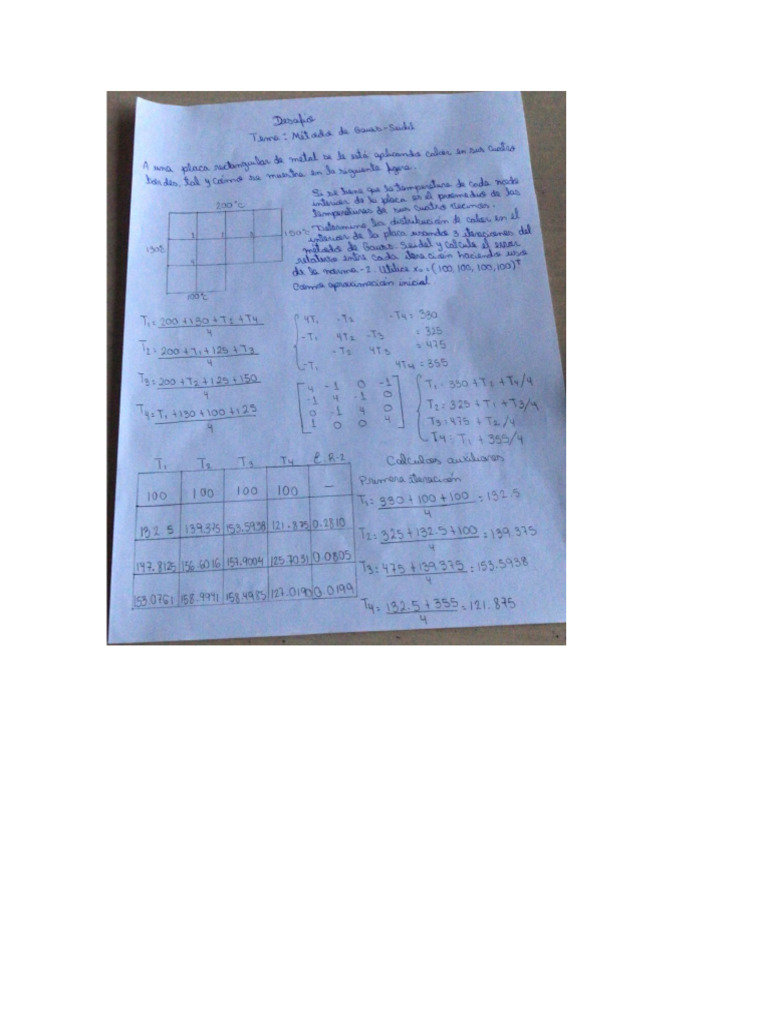 Desafío
Tema: Método de Gauss-Seidel
A una placa rectangular de metal se le está aplicando calor en sus cuatro
bordes, tal y cómo se muestra en la siguiente figura.
Si se tiene que la temperatura de cada nodo
interior de la placa es el promedio de las
temperaturas de sus cuatro vecinos.
Determine la distribución de calor en el
interior de la placa usando 3 iteraciones del
método de Gauss-Seidel y calcule el error
relativo entre cada iteración haciendo uso
de la norma-2. Utilice x₀=(100,100,100,100)ᵀ
Como aproximación inicial.
200°C
150°C
130°C
100°C
1 2 3
4
T₁=200+130+T₂+T₄/4
T₂=200+T₁+125+T₃/4
T₃=200+T₂+125+150/4
T₄=T₁+130+100+125/4
4T₁ -T₂ -T₄=330
-T₁ 4T₂ -T₃ =325
-T₂ 4T₃ =475
-T₁ 4T₄=355
4 -1 0 -1
-1 4 -1 0
0 -1 4 0
1 0 0 4
T₁=330+T₂+T₄/4
T₂=325+T₁+T₃/4
T₃=475+T₂/4
T₄=T₁+355/4
T₁ T₂ T₃ T₄ E.R-2
100 100 100 100 —
132.5 139.375 153.5938 121.875 0.2810
147.8125 156.6016 157.9004 125.7031 0.0805
153.0761 158.9941 158.4985 127.0190 0.0199
Calculos auxiliares
Primera iteración
T₁=330+100+100/4=132.5
T₂=325+132.5+100/4=139.375
T₃=475+139.375/4=153.5938
T₄=132.5+355/4=121.875